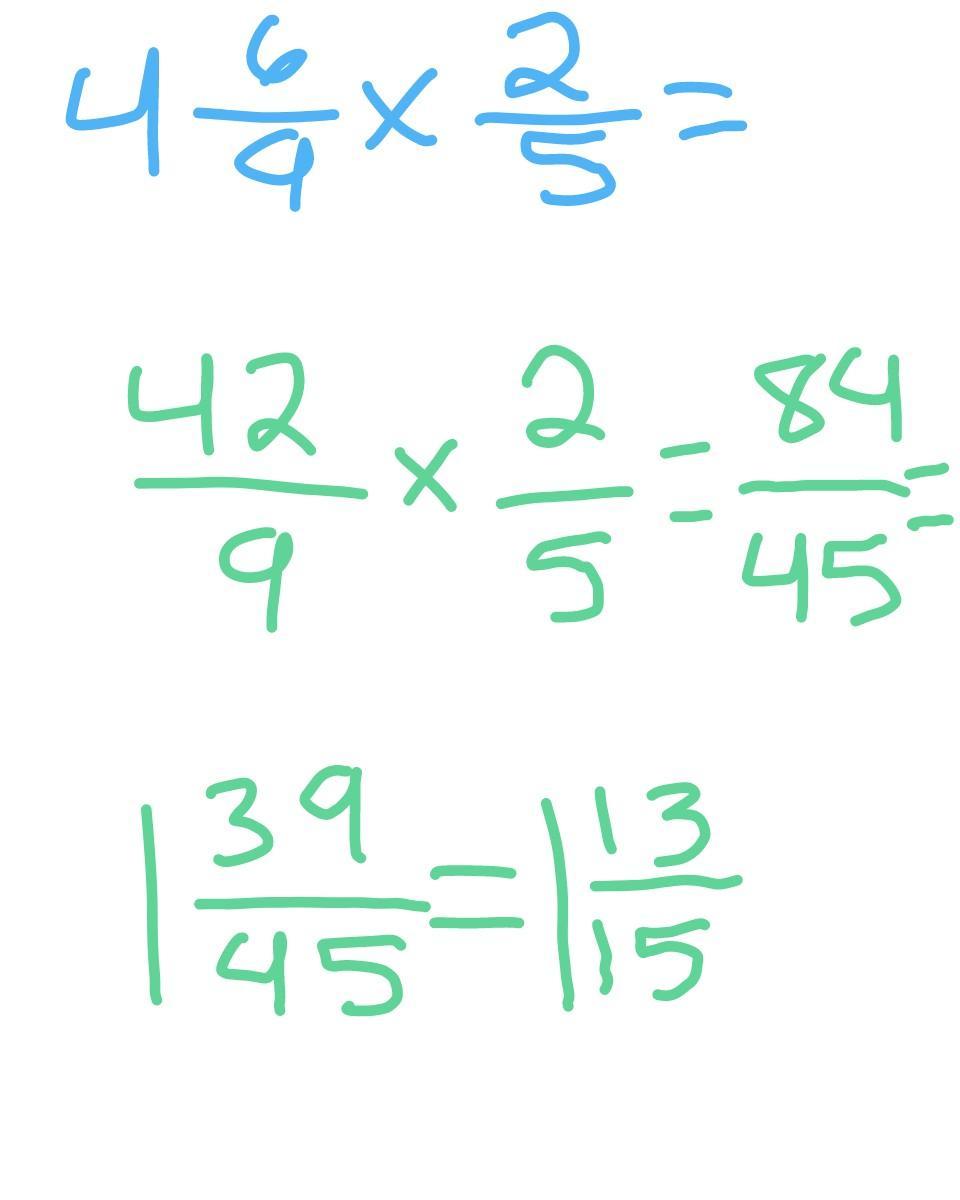 4 6/9 × 2/5 =
42/9 × 2/5 = 84/45 =
1 39/45 = 1 13/15